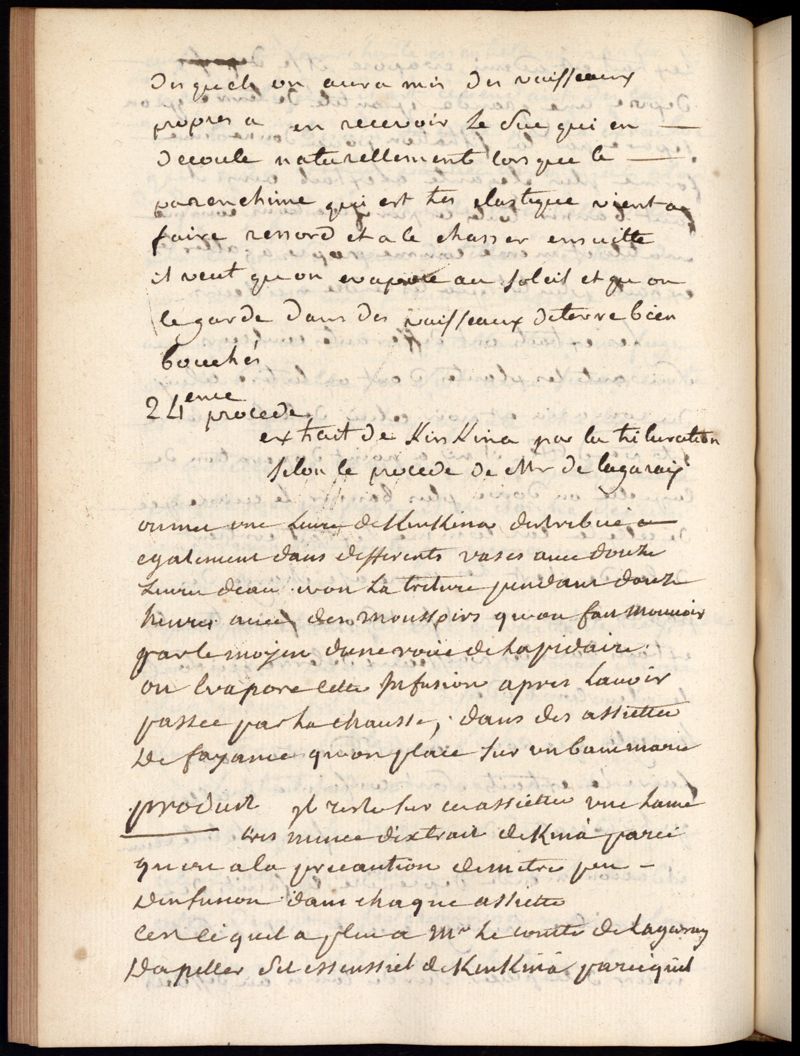 desquels on aura mis des vaisseaux
propres a en recevoir le suc qui en —
decoule naturellement lorsque le —
parenchime qui est tres elastique vient a
faire ressord et a le chasser ensuitte
il veut qu on evapore au soleil et qu on
le garde dans des vaisseaux de terre bien
bouchés
24eme procede
extrait de KinKina par la trituration
selon le procede de Mr de lagaraÿ
on met une Livre de KinKina distribué
egalement dans differents vases avec douze
Livres deau on la triture pendant douze
heures avec des moussoirs quon fait mouvoir
par le moyen dune roüe de Lapidaire.
on Evapore cette infusion apres Lavoir
passée par La chausse, dans des assiettes
De fayance quon place sur un bain marie
produit il reste sur ces assiettes une Lame
tres mince dextrait de Kina parce
quon a la precaution de metre peu –
Dinfusion dans chaque assiette
Cest ce quil a plu a Mr Le comte de Lagaray
Dapeller sel essensiel de KinKina parcequil